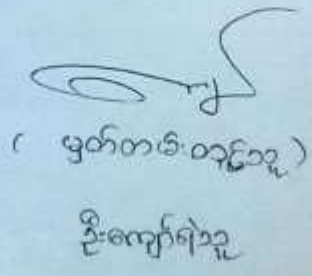 ( မှတ်တမ်းတင်သူ )
ဦးကျော်ရဲသူ